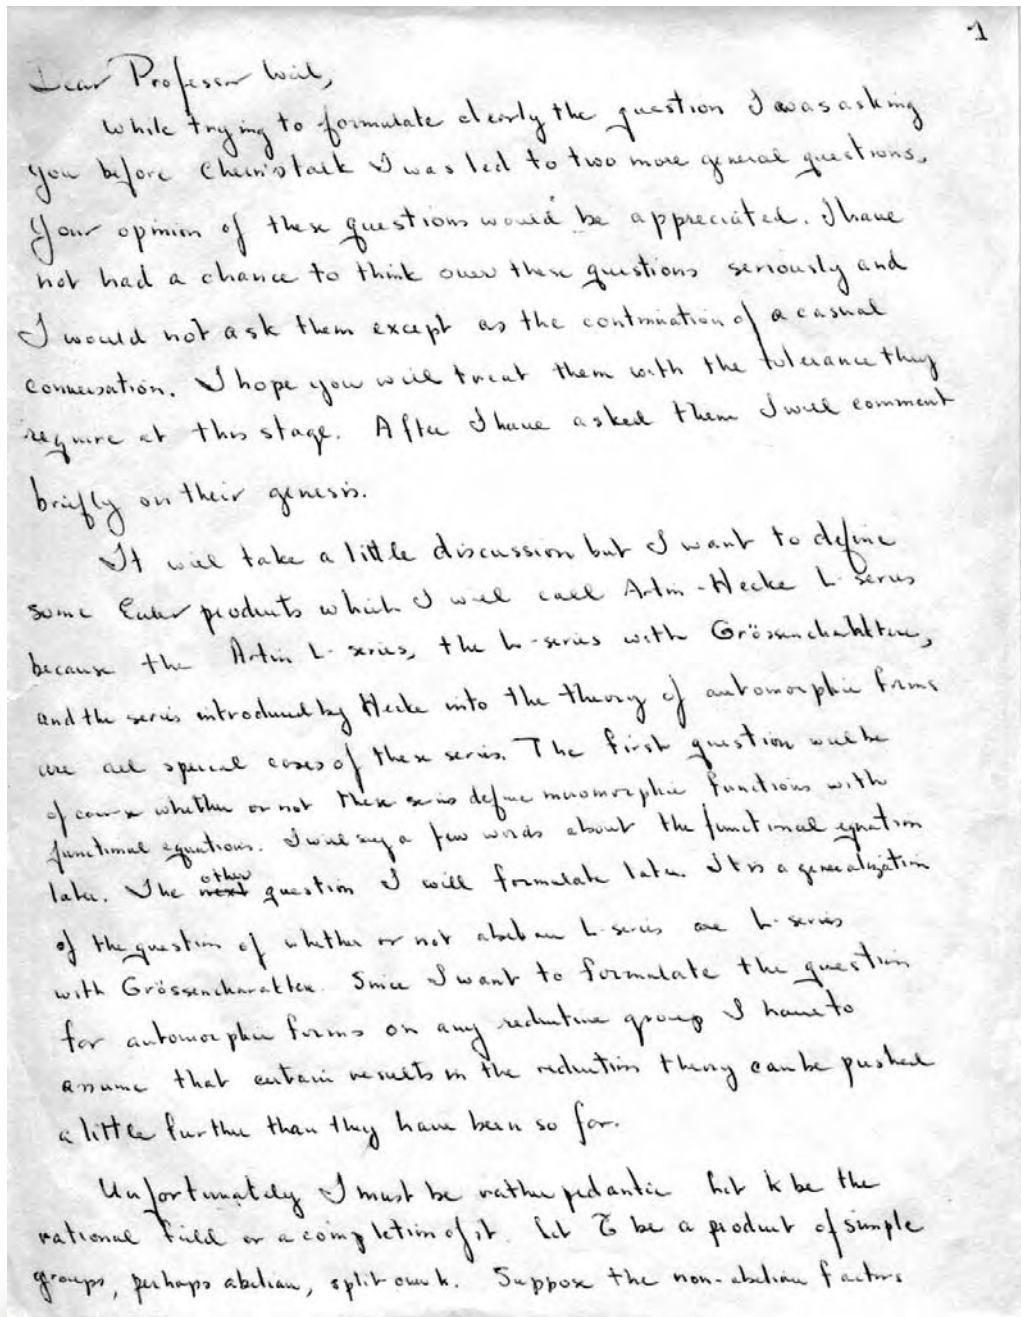 1
Dear Professor Weil,
While trying to formulate clearly the question I was asking
you before Chern's talk I was led to two more general questions.
Your opinion of these questions would be appreciated. I have
not had a chance to think over these questions seriously and
I would not ask them except as the continuation of a casual
conversation. I hope you will treat them with the tolerance they
require at this stage. After I have asked them I will comment
briefly on their genesis.
It will take a little discussion but I want to define
some Euler products which I will call Artin-Hecke L-series
because the Artin L-series, the L-series with Grössencharaktere,
and the series introduced by Hecke into the theory of automorphic forms
are all special cases of these series. The first question will be
of course whether or not these series define meromorphic functions with
functional equations. I will say a few words about the functional equation
later. The other question I will formulate later. It is a generalization
of the question of whether or not abelian L-series are L-series
with Grössencharakter. Since I want to formulate the question
for automorphic forms on any reductive group I have to
assume that certain results in the reduction theory can be pushed
a little further than they have been so far.
Unfortunately I must be rather pedantic. Let k be the
rational field or a completion of it. Let G̃ be a product of simple
groups, perhaps abelian, split over k. Suppose the non-abelian factors